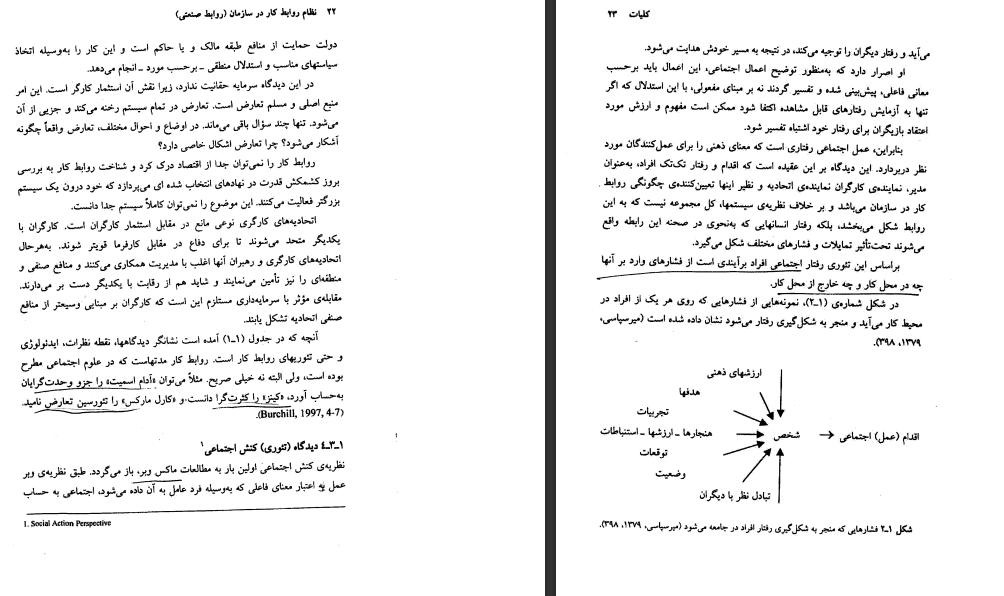 ۲۲ نظام روابط کار در سازمان (روابط صنعتی)
دولت حمایت از منافع طبقه مالک و یا حاکم است و این کار را به‌وسیله اتخاذ
سیاستهای مناسب و استدلال منطقی ـ برحسب مورد ـ انجام می‌دهد.
در این دیدگاه سرمایه حقانیت ندارد، زیرا نقش آن استثمار کارگر است. این امر
منبع اصلی و مسلم تعارض است. تعارض در تمام سیستم رخنه می‌کند و جزیی از آن
می‌شود. تنها چند سؤال باقی می‌ماند. در اوضاع و احوال مختلف، تعارض واقعاً چگونه
آشکار می‌شود؟ چرا تعارض اشکال خاصی دارد؟
روابط کار را نمی‌توان جدا از اقتصاد درک کرد و شناخت روابط کار به بررسی
بروز کشمکش قدرت در نهادهای انتخاب شده ای می‌پردازد که خود درون یک سیستم
بزرگتر فعالیت می‌کنند. این موضوع را نمی‌توان کاملاً سیستم جدا دانست.
اتحادیه‌های کارگری نوعی مانع در مقابل استثمار کارگران است. کارگران با
یکدیگر متحد می‌شوند تا برای دفاع در مقابل کارفرما قویتر شوند. به‌هرحال
اتحادیه‌های کارگری و رهبران آنها اغلب با مدیریت همکاری می‌کنند و منافع صنفی و
منطقه‌ای را نیز تأمین می‌نمایند و شاید هم از رقابت با یکدیگر دست بر می‌دارند.
مقابله‌ی مؤثر با سرمایه‌داری مستلزم این است که کارگران بر مبنایی وسیعتر از منافع
صنفی اتحادیه تشکل یابند.
آنچه که در جدول (۱ـ۱) آمده است نشانگر دیدگاهها، نقطه نظرات، ایدئولوژی
و حتی تئوریهای روابط کار است. روابط کار مدتهاست که در علوم اجتماعی مطرح
بوده است، ولی البته نه خیلی صریح. مثلاً می‌توان «آدام اسمیت» را جزو وحدت‌گرایان
به‌حساب آورد، «کینز» را کثرت‌گرا دانست و «کارل مارکس» را تئورسین تعارض نامید.
(Burchill, 1997, 4-7).
۱ـ۳ـ۴ دیدگاه (تئوری) کنش اجتماعی۱
نظریه‌ی کنش اجتماعی اولین بار به مطالعات ماکس وبر، باز می‌گردد. طبق نظریه‌ی وبر
عمل به اعتبار معنای فاعلی که به‌وسیله فرد عامل به آن داده می‌شود، اجتماعی به حساب
1. Social Action Perspective
کلیات ۲۳
می‌آید و رفتار دیگران را توجیه می‌کند، در نتیجه به مسیر خودش هدایت می‌شود.
او اصرار دارد که به‌منظور توضیح اعمال اجتماعی، این اعمال باید برحسب
معانی فاعلی، پیش‌بینی شده و تفسیر گردند نه بر مبنای مفعولی، با این استدلال که اگر
تنها به آزمایش رفتارهای قابل مشاهده اکتفا شود ممکن است مفهوم و ارزش مورد
اعتقاد بازیگران برای رفتار خود اشتباه تفسیر شود.
بنابراین، عمل اجتماعی رفتاری است که معنای ذهنی را برای عمل‌کنندگان مورد
نظر دربردارد. این دیدگاه بر این عقیده است که اقدام و رفتار تک‌تک افراد، به‌عنوان
مدیر، نماینده‌ی کارگران نماینده‌ی اتحادیه و نظیر اینها تعیین‌کننده‌ی چگونگی روابط
کار در سازمان می‌باشد و بر خلاف نظریه‌ی سیستمها، کل مجموعه نیست که به این
روابط شکل می‌بخشد، بلکه رفتار انسانهایی که به‌نحوی در صحنه این رابطه واقع
می‌شوند تحت‌تأثیر تمایلات و فشارهای مختلف شکل می‌گیرد.
براساس این تئوری رفتار اجتماعی افراد برآیندی است از فشارهای وارد بر آنها
چه در محل کار و چه خارج از محل کار.
در شکل شماره‌ی (۱ـ۲)، نمونه‌هایی از فشارهایی که روی هر یک از افراد در
محیط کار می‌آید و منجر به شکل‌گیری رفتار می‌شود نشان داده شده است (میرسپاسی،
۱۳۷۹، ۳۹۸).
ارزشهای ذهنی
هدفها
تجربیات
هنجارها ـ ارزشها ـ استنباطات
شخص
اقدام (عمل) اجتماعی
توقعات
وضعیت
تبادل نظر با دیگران
شکل ۱ـ۲ فشارهایی که منجر به شکل‌گیری رفتار افراد در جامعه می‌شود (میرسپاسی، ۱۳۷۹، ۳۹۸).